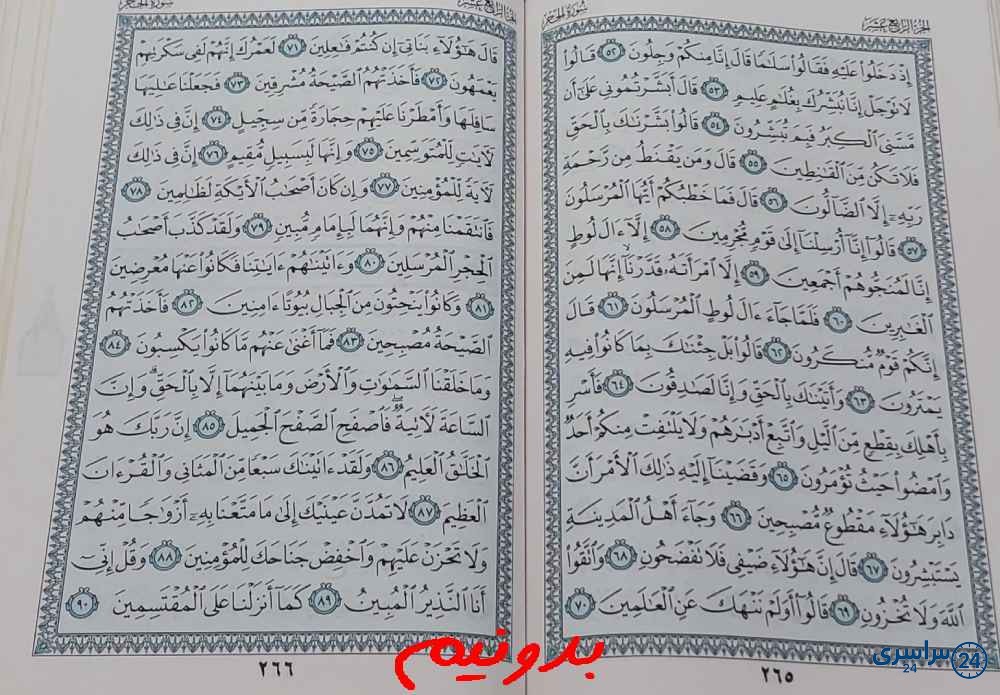 الجزء الرابع عشر
سورة الحجر
إِذْ دَخَلُوا۟ عَلَيْهِ فَقَالُوا۟ سَلَٰمًا قَالَ إِنَّا مِنكُمْ وَجِلُونَ ٥٢ قَالُوا۟
لَا تَوْجَلْ إِنَّا نُبَشِّرُكَ بِغُلَٰمٍ عَلِيمٍ ٥٣ قَالَ أَبَشَّرْتُمُونِى عَلَىٰٓ أَن
مَّسَّنِىَ ٱلْكِبَرُ فَبِمَ تُبَشِّرُونَ ٥٤ قَالُوا۟ بَشَّرْنَٰكَ بِٱلْحَقِّ
فَلَا تَكُن مِّنَ ٱلْقَٰنِطِينَ ٥٥ قَالَ وَمَن يَقْنَطُ مِن رَّحْمَةِ
رَبِّهِۦٓ إِلَّا ٱلضَّآلُّونَ ٥٦ قَالَ فَمَا خَطْبُكُمْ أَيُّهَا ٱلْمُرْسَلُونَ
٥٧ قَالُوٓا۟ إِنَّآ أُرْسِلْنَآ إِلَىٰ قَوْمٍ مُّجْرِمِينَ ٥٨ إِلَّآ ءَالَ لُوطٍ
إِنَّا لَمُنَجُّوهُمْ أَجْمَعِينَ ٥٩ إِلَّا ٱمْرَأَتَهُۥ قَدَّرْنَآ إِنَّهَا لَمِنَ
ٱلْغَٰبِرِينَ ٦٠ فَلَمَّا جَآءَ ءَالَ لُوطٍ ٱلْمُرْسَلُونَ ٦١ قَالَ
إِنَّكُمْ قَوْمٌ مُّنكَرُونَ ٦٢ قَالُوا۟ بَلْ جِئْنَٰكَ بِمَا كَانُوا۟ فِيهِ
يَمْتَرُونَ ٦٣ وَأَتَيْنَٰكَ بِٱلْحَقِّ وَإِنَّا لَصَٰدِقُونَ ٦٤ فَأَسْرِ
بِأَهْلِكَ بِقِطْعٍ مِّنَ ٱلَّيْلِ وَٱتَّبِعْ أَدْبَٰرَهُمْ وَلَا يَلْتَفِتْ مِنكُمْ أَحَدٌ
وَٱمْضُوا۟ حَيْثُ تُؤْمَرُونَ ٦٥ وَقَضَيْنَآ إِلَيْهِ ذَٰلِكَ ٱلْأَمْرَ أَنَّ
دَابِرَ هَٰٓؤُلَآءِ مَقْطُوعٌ مُّصْبِحِينَ ٦٦ وَجَآءَ أَهْلُ ٱلْمَدِينَةِ
يَسْتَبْشِرُونَ ٦٧ قَالَ إِنَّ هَٰٓؤُلَآءِ ضَيْفِى فَلَا تَفْضَحُونِ ٦٨ وَٱتَّقُوا۟
ٱللَّهَ وَلَا تُخْزُونِ ٦٩ قَالُوٓا۟ أَوَلَمْ نَنْهَكَ عَنِ ٱلْعَٰلَمِينَ ٧٠
٢٦٥
الجزء الرابع عشر
سورة الحجر
قَالَ هَٰٓؤُلَآءِ بَنَاتِىٓ إِن كُنتُمْ فَٰعِلِينَ ٧١ لَعَمْرُكَ إِنَّهُمْ لَفِى سَكْرَتِهِمْ
يَعْمَهُونَ ٧٢ فَأَخَذَتْهُمُ ٱلصَّيْحَةُ مُشْرِقِينَ ٧٣ فَجَعَلْنَا عَٰلِيَهَا
سَافِلَهَا وَأَمْطَرْنَا عَلَيْهِمْ حِجَارَةً مِّن سِجِّيلٍ ٧٤ إِنَّ فِى ذَٰلِكَ
لَءَايَٰتٍ لِّلْمُتَوَسِّمِينَ ٧٥ وَإِنَّهَا لَبِسَبِيلٍ مُّقِيمٍ ٧٦ إِنَّ فِى ذَٰلِكَ
لَءَايَةً لِّلْمُؤْمِنِينَ ٧٧ وَإِن كَانَ أَصْحَٰبُ ٱلْأَيْكَةِ لَظَٰلِمِينَ ٧٨
فَٱنتَقَمْنَا مِنْهُمْ وَإِنَّهُمَا لَبِإِمَامٍ مُّبِينٍ ٧٩ وَلَقَدْ كَذَّبَ أَصْحَٰبُ
ٱلْحِجْرِ ٱلْمُرْسَلِينَ ٨٠ وَءَاتَيْنَٰهُمْ ءَايَٰتِنَا فَكَانُوا۟ عَنْهَا مُعْرِضِينَ
٨١ وَكَانُوا۟ يَنْحِتُونَ مِنَ ٱلْجِبَالِ بُيُوتًا ءَامِنِينَ ٨٢ فَأَخَذَتْهُمُ
ٱلصَّيْحَةُ مُصْبِحِينَ ٨٣ فَمَآ أَغْنَىٰ عَنْهُم مَّا كَانُوا۟ يَكْسِبُونَ ٨٤
وَمَا خَلَقْنَا ٱلسَّمَٰوَٰتِ وَٱلْأَرْضَ وَمَا بَيْنَهُمَآ إِلَّا بِٱلْحَقِّ ۗ وَإِنَّ
ٱلسَّاعَةَ لَءَاتِيَةٌ ۖ فَٱصْفَحِ ٱلصَّفْحَ ٱلْجَمِيلَ ٨٥ إِنَّ رَبَّكَ هُوَ
ٱلْخَلَّٰقُ ٱلْعَلِيمُ ٨٦ وَلَقَدْ ءَاتَيْنَٰكَ سَبْعًا مِّنَ ٱلْمَثَانِى وَٱلْقُرْءَانَ
ٱلْعَظِيمَ ٨٧ لَا تَمُدَّنَّ عَيْنَيْكَ إِلَىٰ مَا مَتَّعْنَا بِهِۦٓ أَزْوَٰجًا مِّنْهُمْ
وَلَا تَحْزَنْ عَلَيْهِمْ وَٱخْفِضْ جَنَاحَكَ لِلْمُؤْمِنِينَ ٨٨ وَقُلْ إِنِّىٓ
أَنَا ٱلنَّذِيرُ ٱلْمُبِينُ ٨٩ كَمَآ أَنزَلْنَا عَلَى ٱلْمُقْتَسِمِينَ ٩٠
٢٦٦
بدونیم
سراسری 24
24